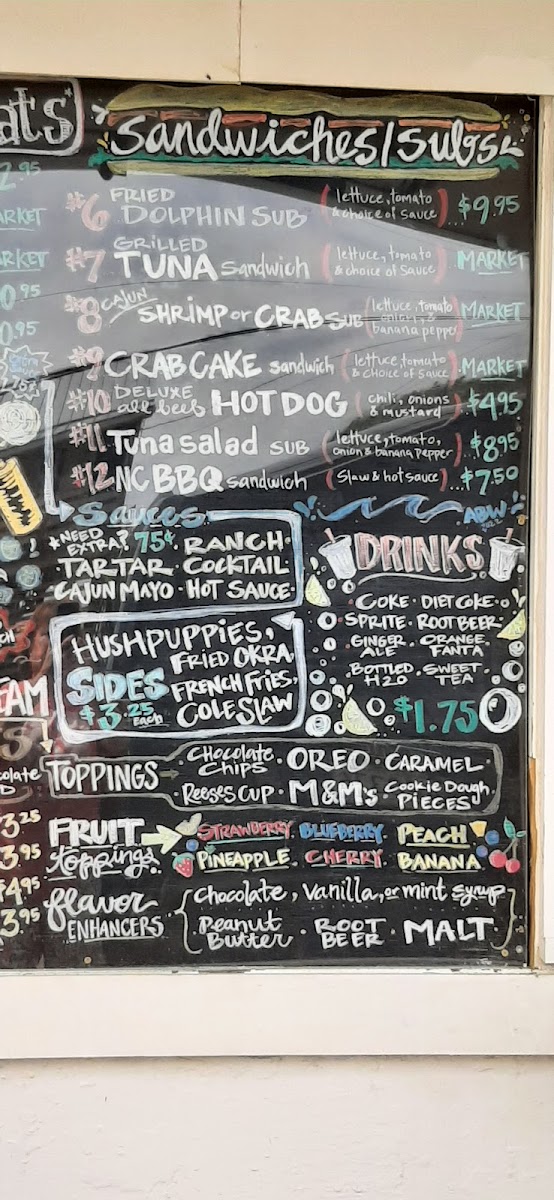 ats
Sandwiches/subs
2.95
#6 FRIED DOLPHIN SUB (lettuce, tomato & choice of sauce) $9.95
ARKET
#7 GRILLED TUNA Sandwich (lettuce, tomato & choice of sauce) MARKET
RKET
#8 CAJUN SHRIMP or CRAB SUB (lettuce, tomato & banana pepper) MARKET
0.95
#9 CRAB CAKE sandwich (lettuce, tomato & choice of sauce) MARKET
#10 DELUXE all beef HOT DOG (chili, onions & mustard) $4.95
#11 Tuna salad SUB (lettuce, tomato, onion & banana pepper) $8.95
#12 NC BBQ sandwich (Slaw & hot sauce) $7.50
Sauces
*NEED EXTRA? 75¢ RANCH
TARTAR · COCKTAIL
CAJUN MAYO · HOT SAUCE
ABW
DRINKS
COKE · DIET COKE
SPRITE · ROOT BEER
GINGER ALE · ORANGE FANTA
BOTTLED H2O · SWEET TEA
$1.75
HUSHPUPPIES,
FRIED OKRA
SIDES FRENCH FRIES,
$3.25 Each COLESLAW
TOPPINGS
Chocolate Chips · OREO · CARAMEL
Reeses CUP · M&M's · Cookie Dough PIECES
3.25
FRUIT toppings
STRAWBERRY · BLUEBERRY · PEACH
3.95
PINEAPPLE · CHERRY · BANANA
4.95
flavor ENHANCERS
Chocolate, vanilla, or mint syrup
3.95
Peanut Butter · ROOT BEER · MALT